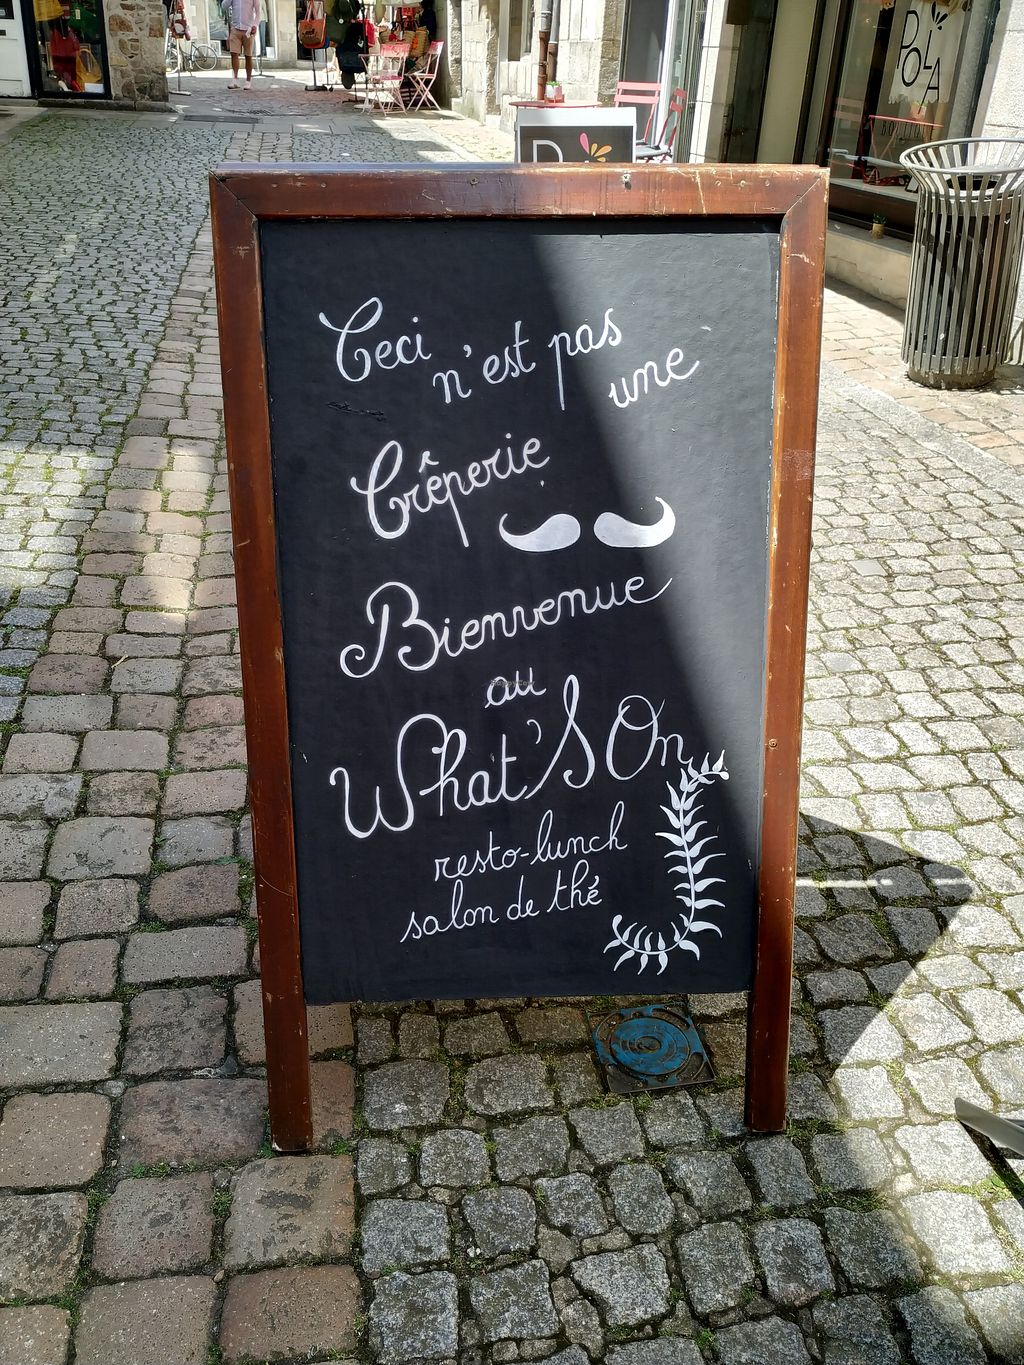 Ceci n'est pas
une
Crêperie
Bienvenue
au
What'S On
resto-lunch
salon de thé
POLA